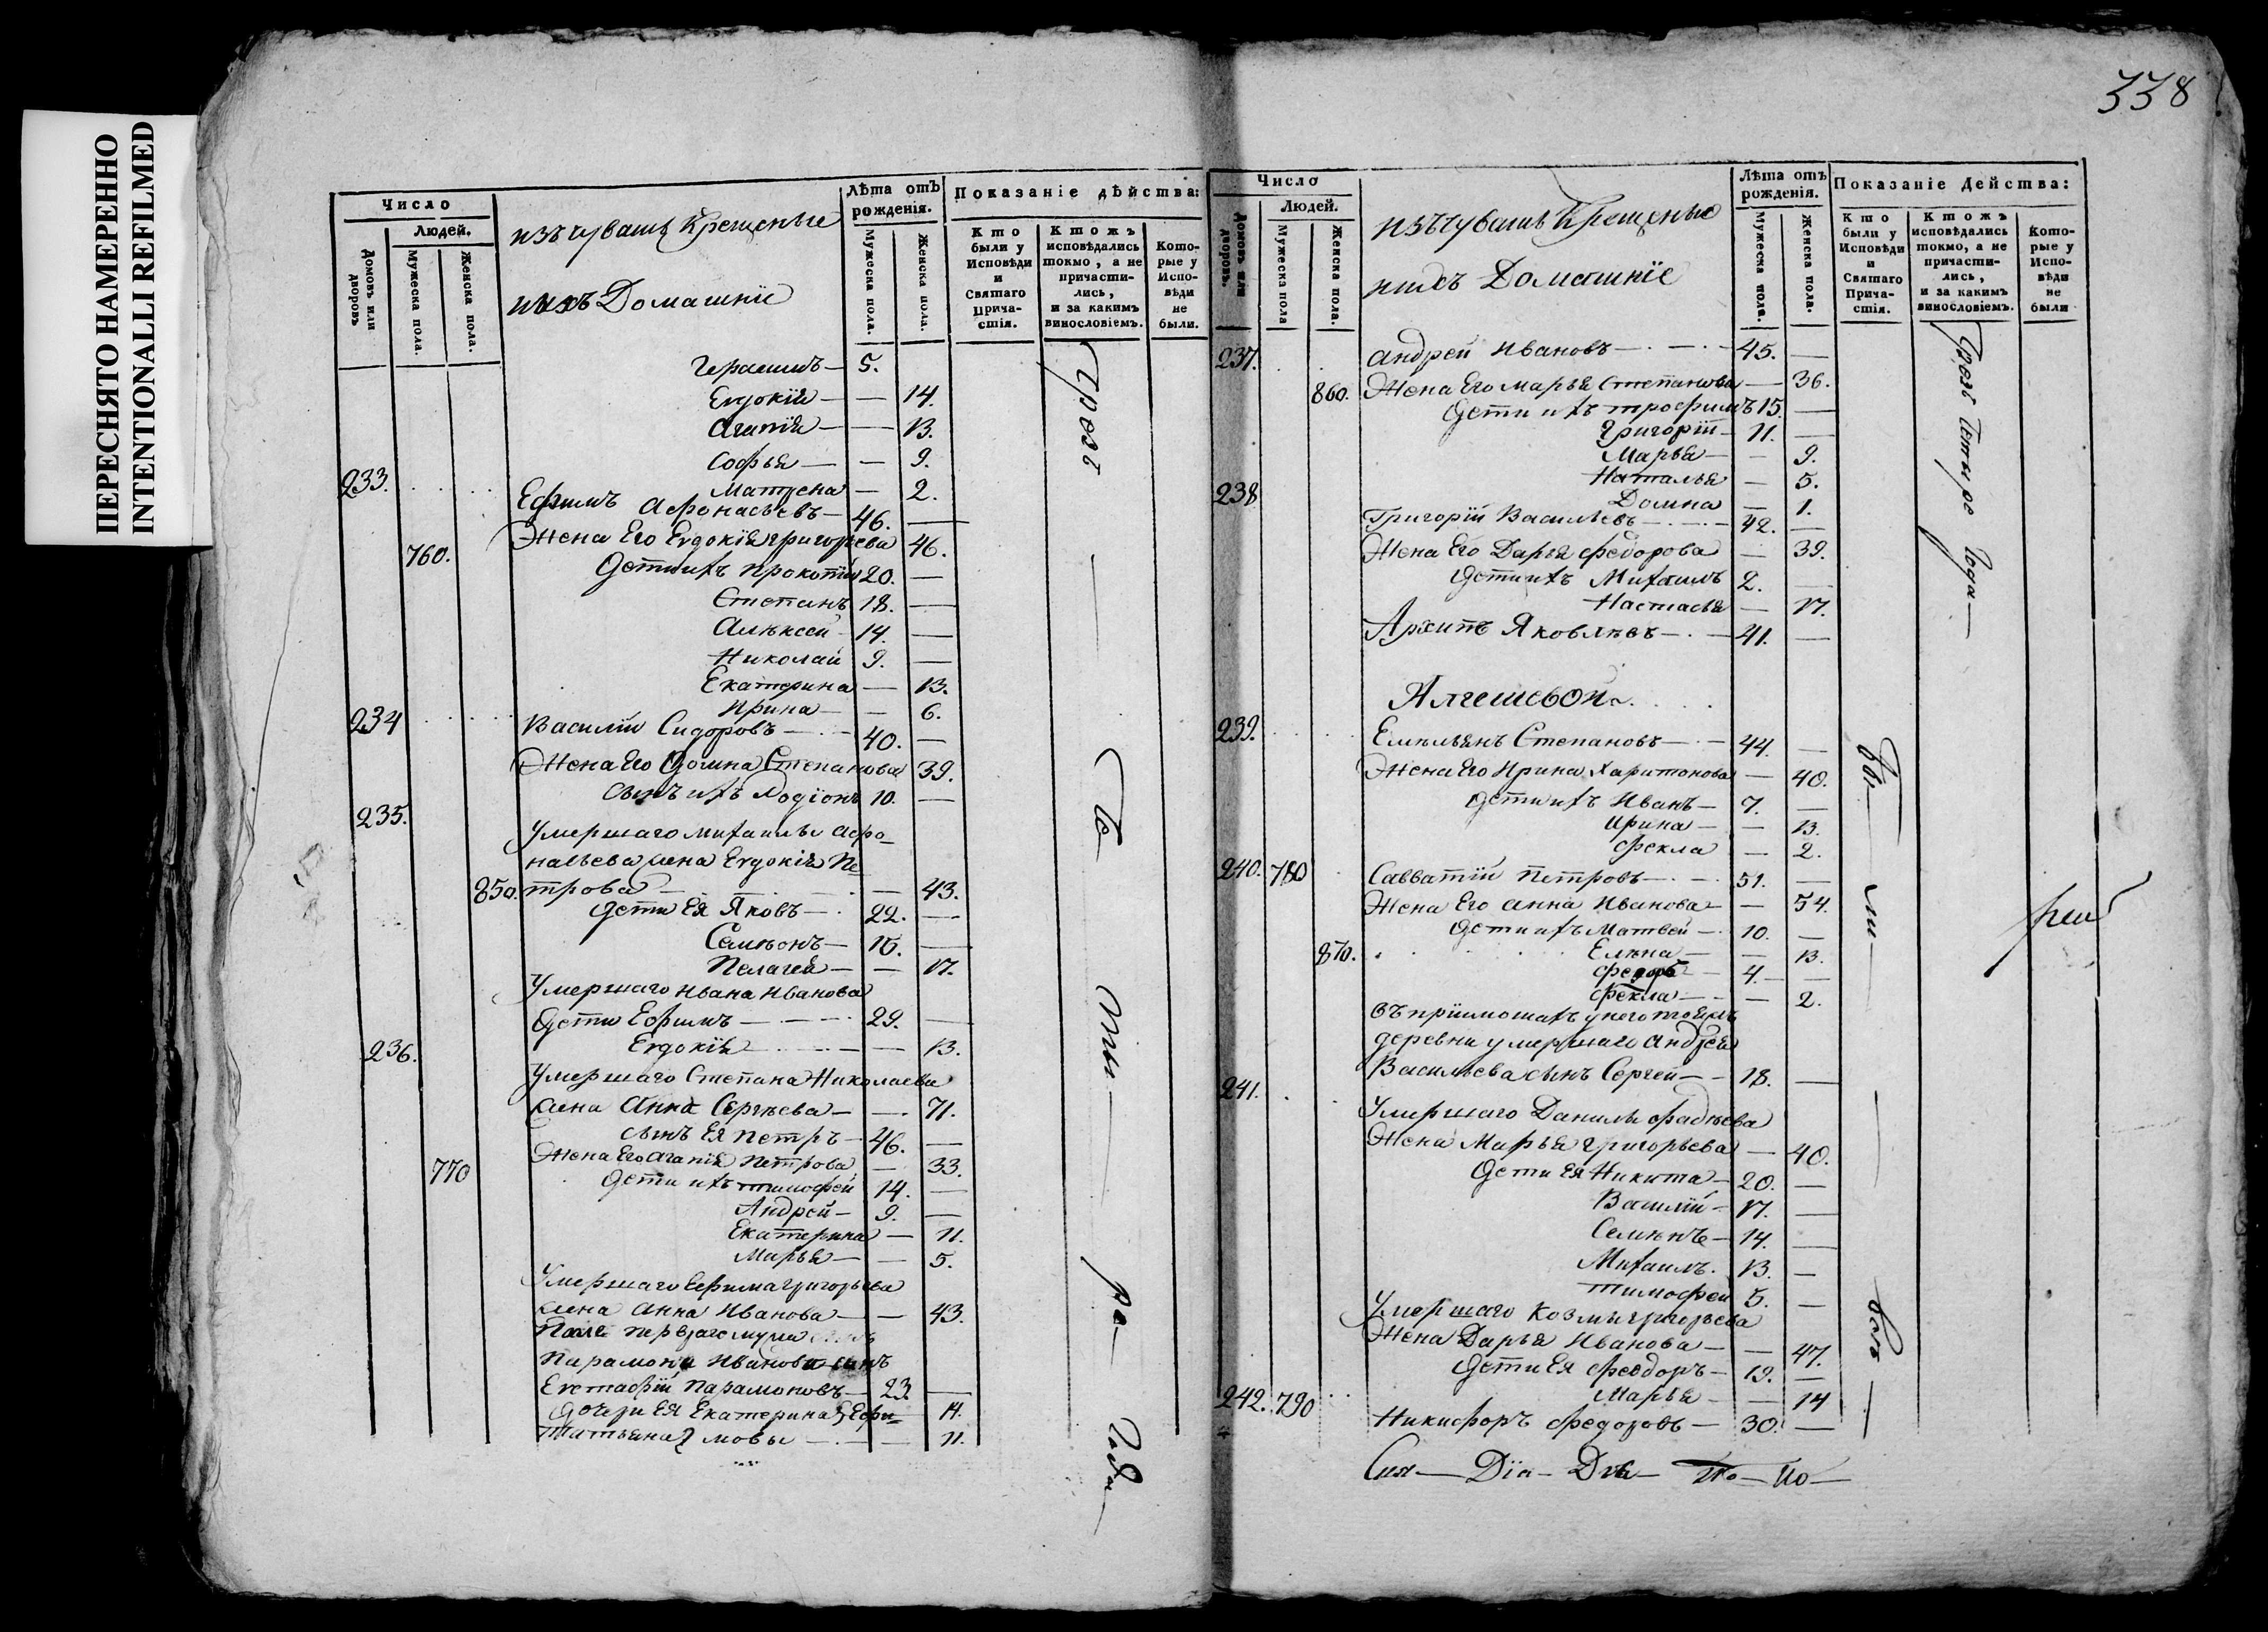 338
ПЕРЕСНЯТО НАМЕРЕННО
INTENTIONALLI REFILMED
Число
Людей.
Домовъ или дворовъ
Мужеска пола.
Женска пола.
изъ чувашъ Крещеныие
ихъ Домашнiи
Лѣта отъ рожденiя.
Мужеска пола.
Женска пола.
Показанiе дѣйства:
Кто были у Исповѣди и Святаго Прича-стiя.
Ктожъ исповѣдались токмо, а не причасти-лись, и за какимъ винословiемъ.
Кото-рые у Испо-вѣди не были.
Герасимъ — 5.
Евдокiя — — 14.
Агапiя — — 13.
Софья — — 9.
Матрена — 2.
233. Ефимъ Афонасьевъ — 46. —
Жена Его Евдокiя григорьева 46.
760. Дети ихъ прокопiй 20. —
Степанъ 18. —
Алѣксей 14. —
Николай 9. —
Екатерина — 13.
Ирина — — 6.
234 Василiй Сидоровъ — 40. —
Жена Его Домна Степанова 39.
сынъ ихъ Родiонъ 10. —
235. Умершаго михаилы афо-
насьева жена Евдокiя Пе
850. трова — — 43.
дети Ея Яковъ — 22. —
Семѣонъ — 15. —
Пелагея — — 17.
Умершаго Ивана Иванова
Дети Ефимъ — 29. —
Евдокiя — — 13.
236. Умершаго Степана Николаева
жена Анна Сергѣева — — 71.
сынъ Ея петръ — 46. —
Жена Его Агапiя Петрова — 33.
770 Дети ихъ тимофей 14. —
Андрей — 9. —
Екатерина — 11.
Марья — — 5.
Умершаго Ефима григорьева
жена анна Иванова — — 43.
Парамона Иванова сынъ
Евстафiй Парамоновъ — 23. —
Дочери Ея Екатерина } Ефи- 14.
Татьяна } мовы — — 11.
трозъ
Го — ды
Число
Людей.
Домовъ или дворовъ.
Мужеска пола
Женска пола.
изъ чувашъ Крещеные
ихъ Домашнiе
Лѣта отъ рожденiя.
Мужеска пола.
Женска пола.
Показанiе Действа:
Кто были у Исповѣди и Святаго Прича-стiя.
Ктожъ исповѣдались токмо, а не причасти-лись, и за какимъ винословiемъ.
Кото-рые у Испо-вѣди не были
237. андрей Ивановъ — 45. —
860. Жена Его Марья Степанова — 36.
Дети ихъ трофимъ 15. —
Григорiй — 11. —
Марья — — 9.
Наталья — 5.
Домна — 1.
238 Григорiй Васильевъ — 42. —
Жена Его Дарья федорова — 39.
Дети ихъ Михаилъ 2. —
Настасья — 17.
Архипъ Яковлѣвъ — 41. —
Алгешевой
239. Емельянъ Степановъ — 44. —
Жена Его Ирина Харитонова — 40.
дети ихъ Иванъ — 7. —
Ирина — — 13.
фекла — 2.
240. 780 Савватiй Петровъ — 51. —
Жена Его анна Иванова — — 54.
Дети ихъ Матвей — 10. —
870. Елѣна — — 13.
федоръ — 4. —
фекла — — 2.
въ прiимошахъ у него тоежъ
деревни умершаго Андрея
Васильева сынъ Сергей — 18. —
241. Умершаго Данилы фадѣева
Жена Марья григорьева — 40.
Дети Ея Никита — 20. —
Василiй — 17. —
Семѣнъ — 14. —
Михаилъ. 13. —
тимофей 5. —
Умершаго Козмы григорьева
Жена Дарья Иванова — — 47.
Дети Ея феодоръ — 19. —
Марья — — 14
242. 790 Никифоръ федоровъ — 30. —
четыре года —
Сия — Дiа — Дѣа — То — По —